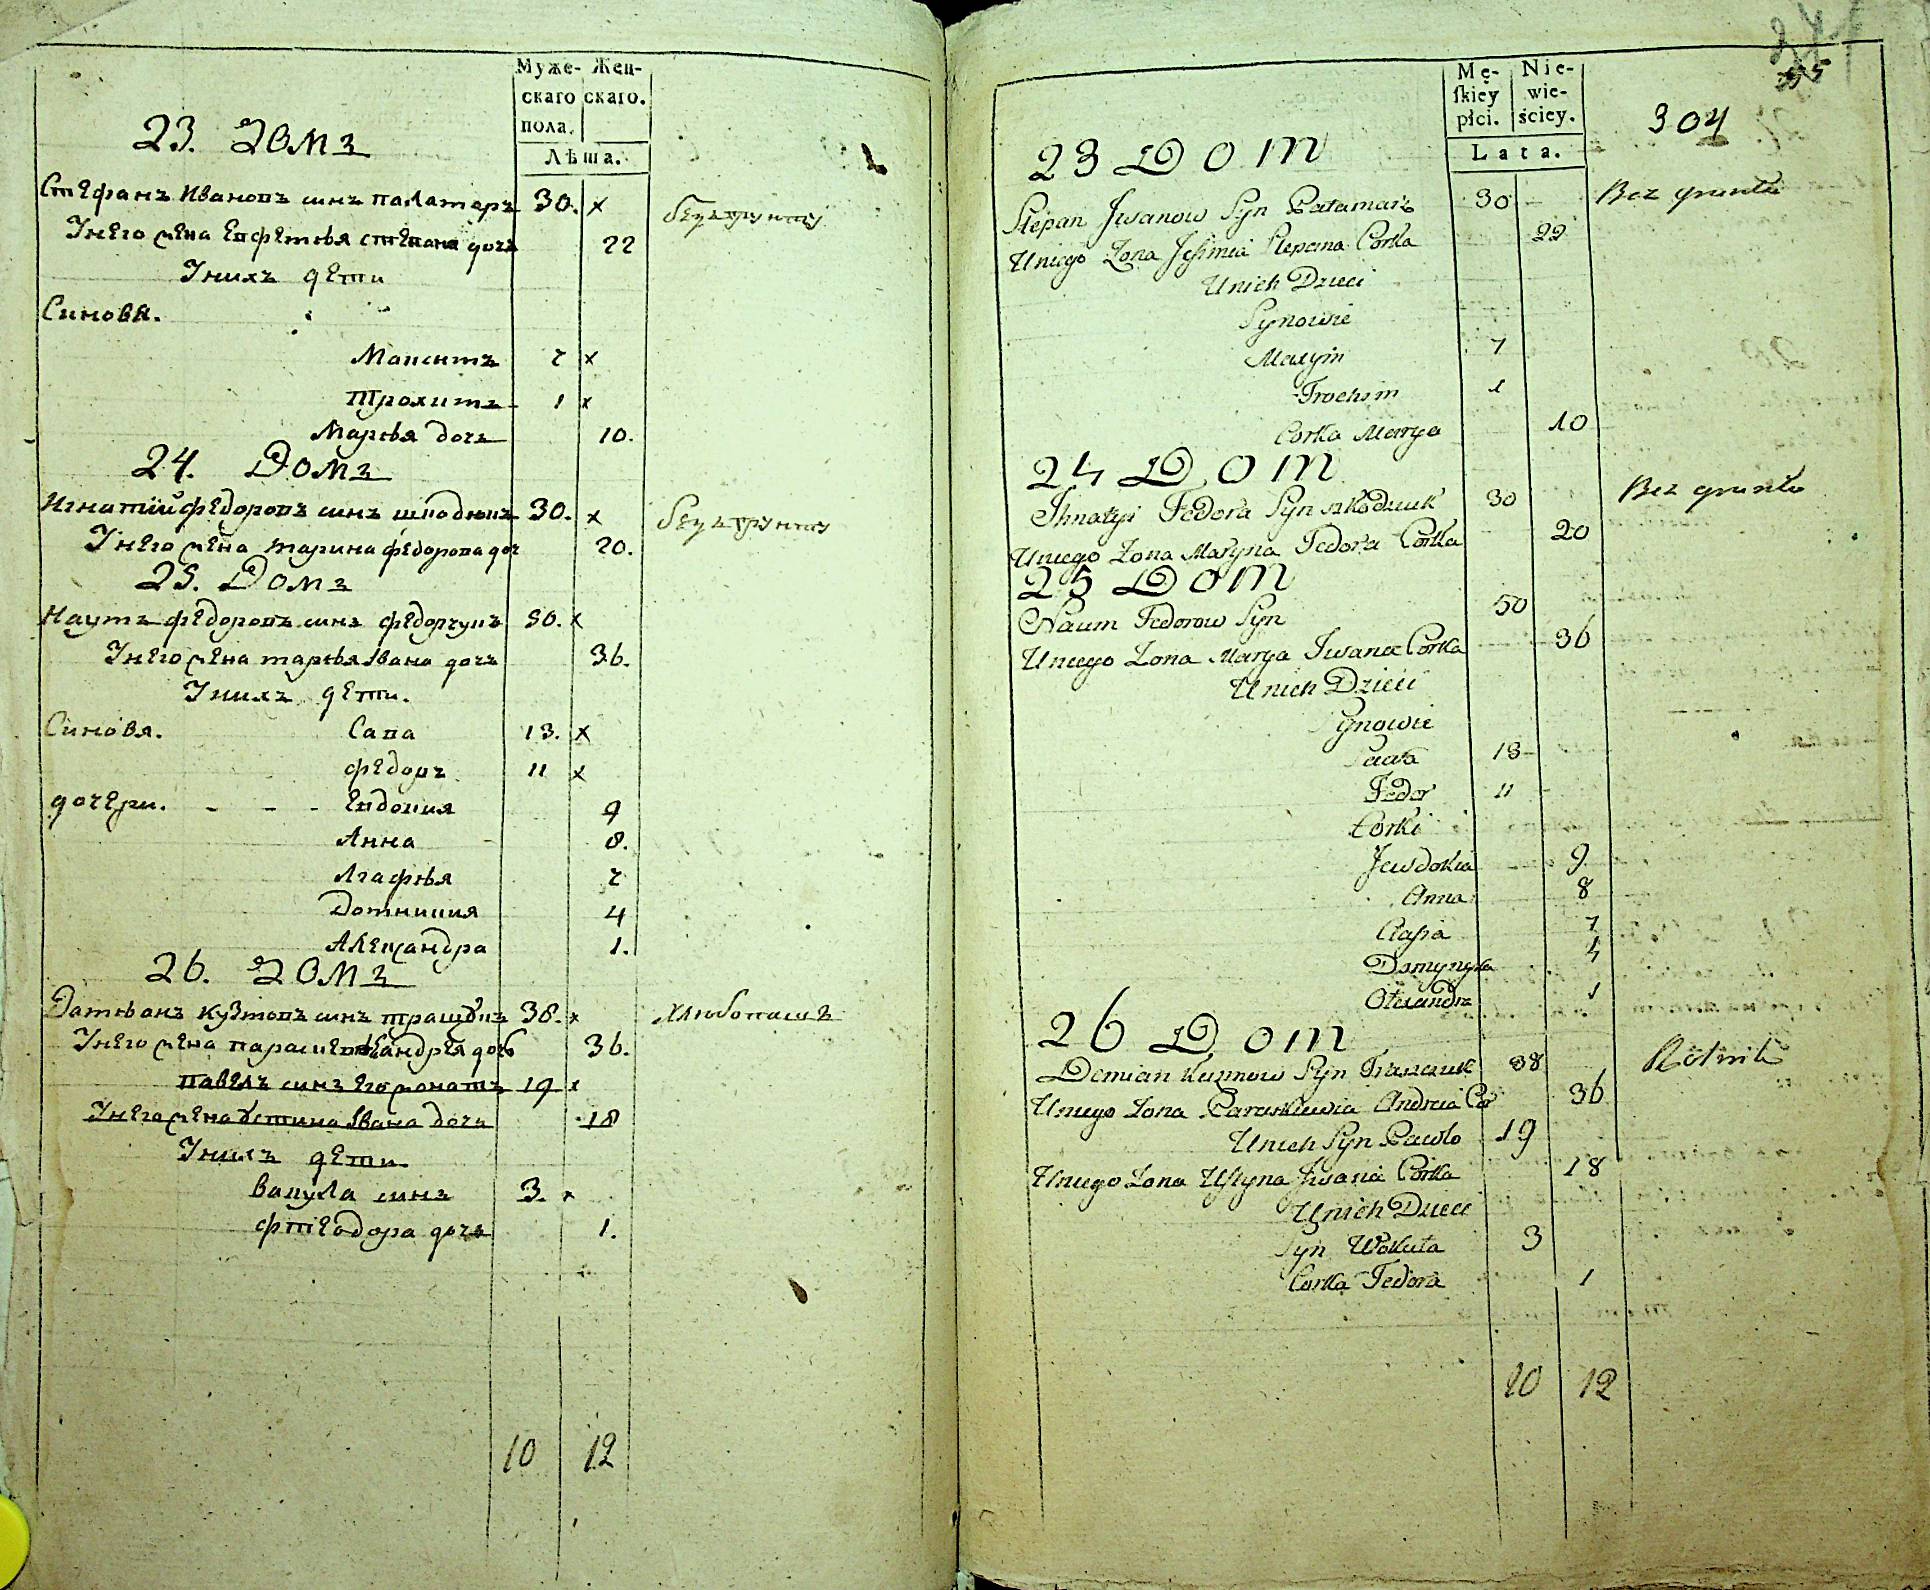 Муже- Жен-
скаго скаго.
пола.
Лѣта.
23. Домъ
Стефанъ Ивановъ синъ паламаръ 30. x безъ грунту
У него жена Евфемѣя степана дочь 22
У нихъ дети
Синовя.
Максимъ 7 x
Трохимъ 1 x
Марѣя дочь 10.
24. Домъ
Игнатій федоровъ синъ 30. x безъ грунту
У него жена марина федорова доч 20.
25. Домъ
Наумъ федоровъ синъ федорчукъ 50. x
У него жена марѣя Ивана дочь 36.
У нихъ дети.
Синовя. Сава 13. x
федоръ 11 x
дочери. - - - Евдокия 9
Анна 8.
Агафѣя 7
Домникия 4
Александра 1.
26. Домъ
Дамѣанъ кузмовъ синъ 38. x хлѣбопашъ
У него жена параскевѣя андрея дочь 36.
павелъ синъ его женатъ 19 x
У него жена Устина Ивана дочь 18
У нихъ дети
вакула синъ 3. x
фтеодора дочь 1.
10 12
Mę- Nie-
skiey wie-
płci. ściey.
Lata.
55
304
23 Dom
Stepan Jwanow Syn Pałamarz 30 - Bez gruntu
U niego Żona Jefimia Stepana Corka 22
U nich Dzieci
Synowie
Maxym 7
Trochim 1
Corka Marya 10
24 Dom
Jhnatyi Fedora Syn 30 Bez gruntu
U niego Żona Maryna Fedora Corka 20
25 Dom
Naum Fedorow Syn 50
U niego Żona Marya Jwana Corka 36
U nich Dzieci
Synowie
Sawa 18
Fedor 11
Corki
Jewdokia 9
Anna 8
7
4
Olexandra 1
26 Dom
Demian Kuzmow Syn 38 Rolnik
U niego Żona Paraskiewia Andreia Cor 36
U nich Syn Pawlo 19
U niego Żona Ustyna Jwana Corka 18
U nich Dzieci
Syn Wakuła 3
Corka Fedora 1
10 12